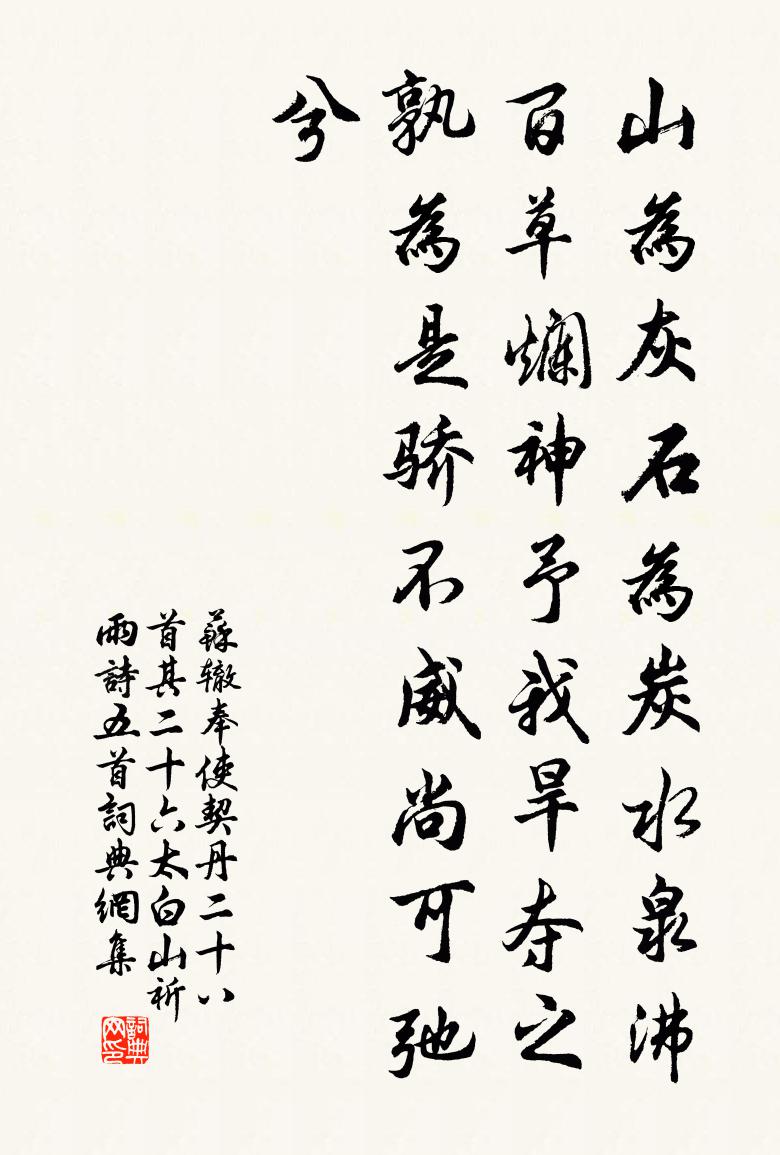 山為灰石為炭水泉沸
百草爛神予我旱夺之
孰為是骄不威尚可弛
兮
蘇辙奉使契丹二十八
首其二十六太白山祈
雨詩五首詞典網集
詞典
网印